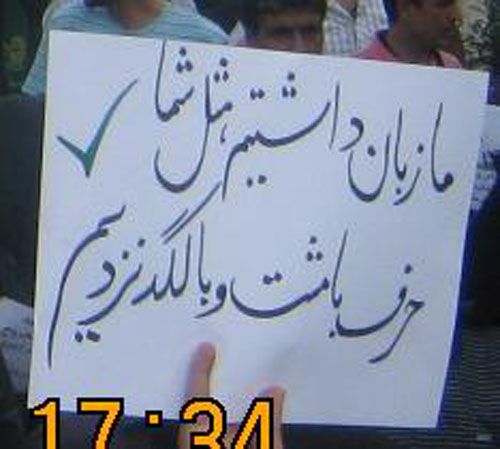 ما زبان داشتیم، مثل شما
حرف با مشت و با لگد نزدیم
17:34